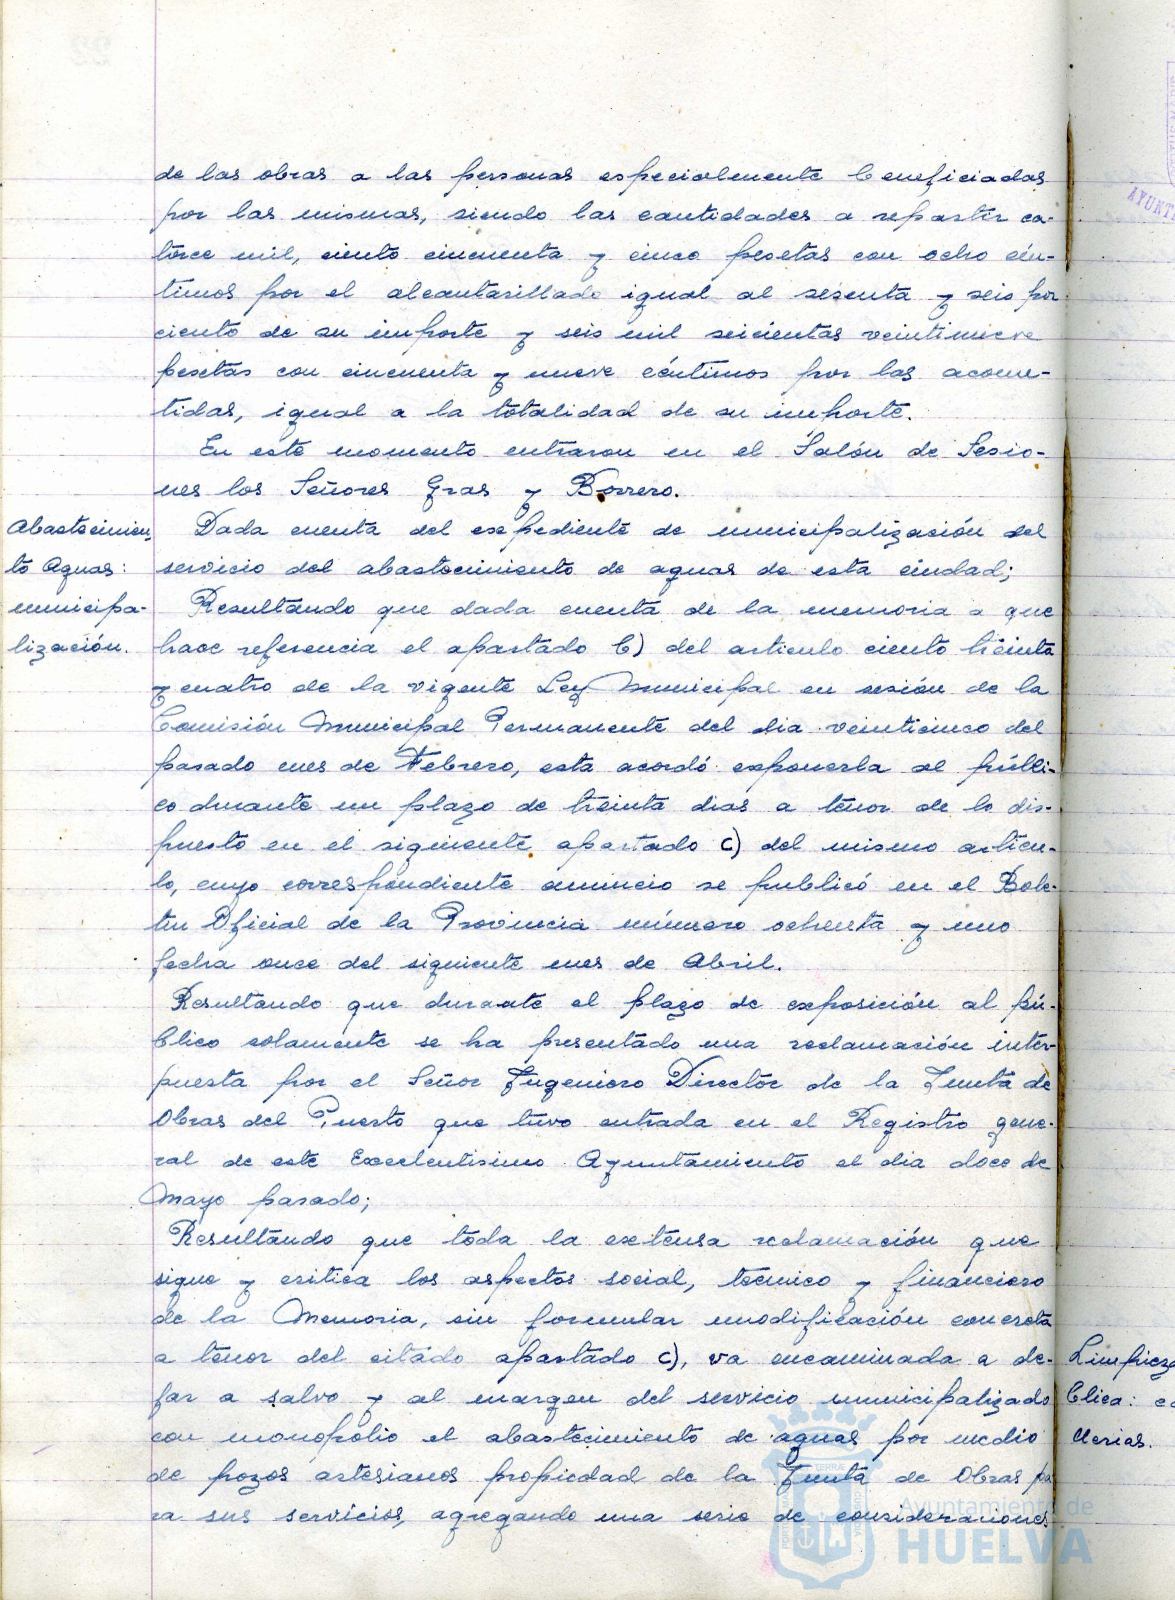 de las obras a las personas especialmente beneficiadas
por las mismas, siendo las cantidades a repartir ca-
torce mil, ciento cincuenta y cinco pesetas con ocho cén-
timos por el alcantarillado igual al sesenta y seis por
ciento de su importe y seis mil seicientas veintinueve
pesetas con cincuenta y nueve céntimos por las acome-
tidas, igual a la totalidad de su importe.
En este momento entraron en el Salón de Sesio-
nes los Señores Gras y Borrero.
Abastecimien-
to Aguas:
municipa-
lización.
Dada cuenta del expediente de municipalización del
servicio del abastecimiento de aguas de esta ciudad;
Resultando que dada cuenta de la memoria a que
hace referencia el apartado b) del articulo ciento treinta
y cuatro de la vigente Ley Municipal en sesión de la
Comisión Municipal Permanente del dia veinticinco del
pasado mes de Febrero, esta acordó exponerla al públi-
co durante un plazo de treinta dias a tenor de lo dis-
puesto en el siguiente apartado c) del mismo articu-
lo, cuyo correspondiente anuncio se publicó en el Bole-
tin Oficial de la Provincia número ochenta y uno
fecha once del siguiente mes de Abril.
Resultando que durante el plazo de exposición al pú-
blico solamente se ha presentado una reclamación inter-
puesta por el Señor Ingeniero Director de la Junta de
Obras del Puerto que tuvo entrada en el Registro gene-
ral de este Excelentisimo Ayuntamiento el dia doce de
Mayo pasado;
Resultando que toda la extensa reclamación que
sigue y critica los aspectos social, tecnico y financiero
de la Memoria, sin formular modificación concreta
a tenor del citado apartado c), va encaminada a de-
jar a salvo y al margen del servicio municipalizado
con monopolio el abastecimiento de aguas por medio
de pozos artesianos propiedad de la Junta de Obras pa
ra sus servicios, agregando una serie de consideraciones
Limpieza
blica: ca
Ayuntamiento de
HUELVA